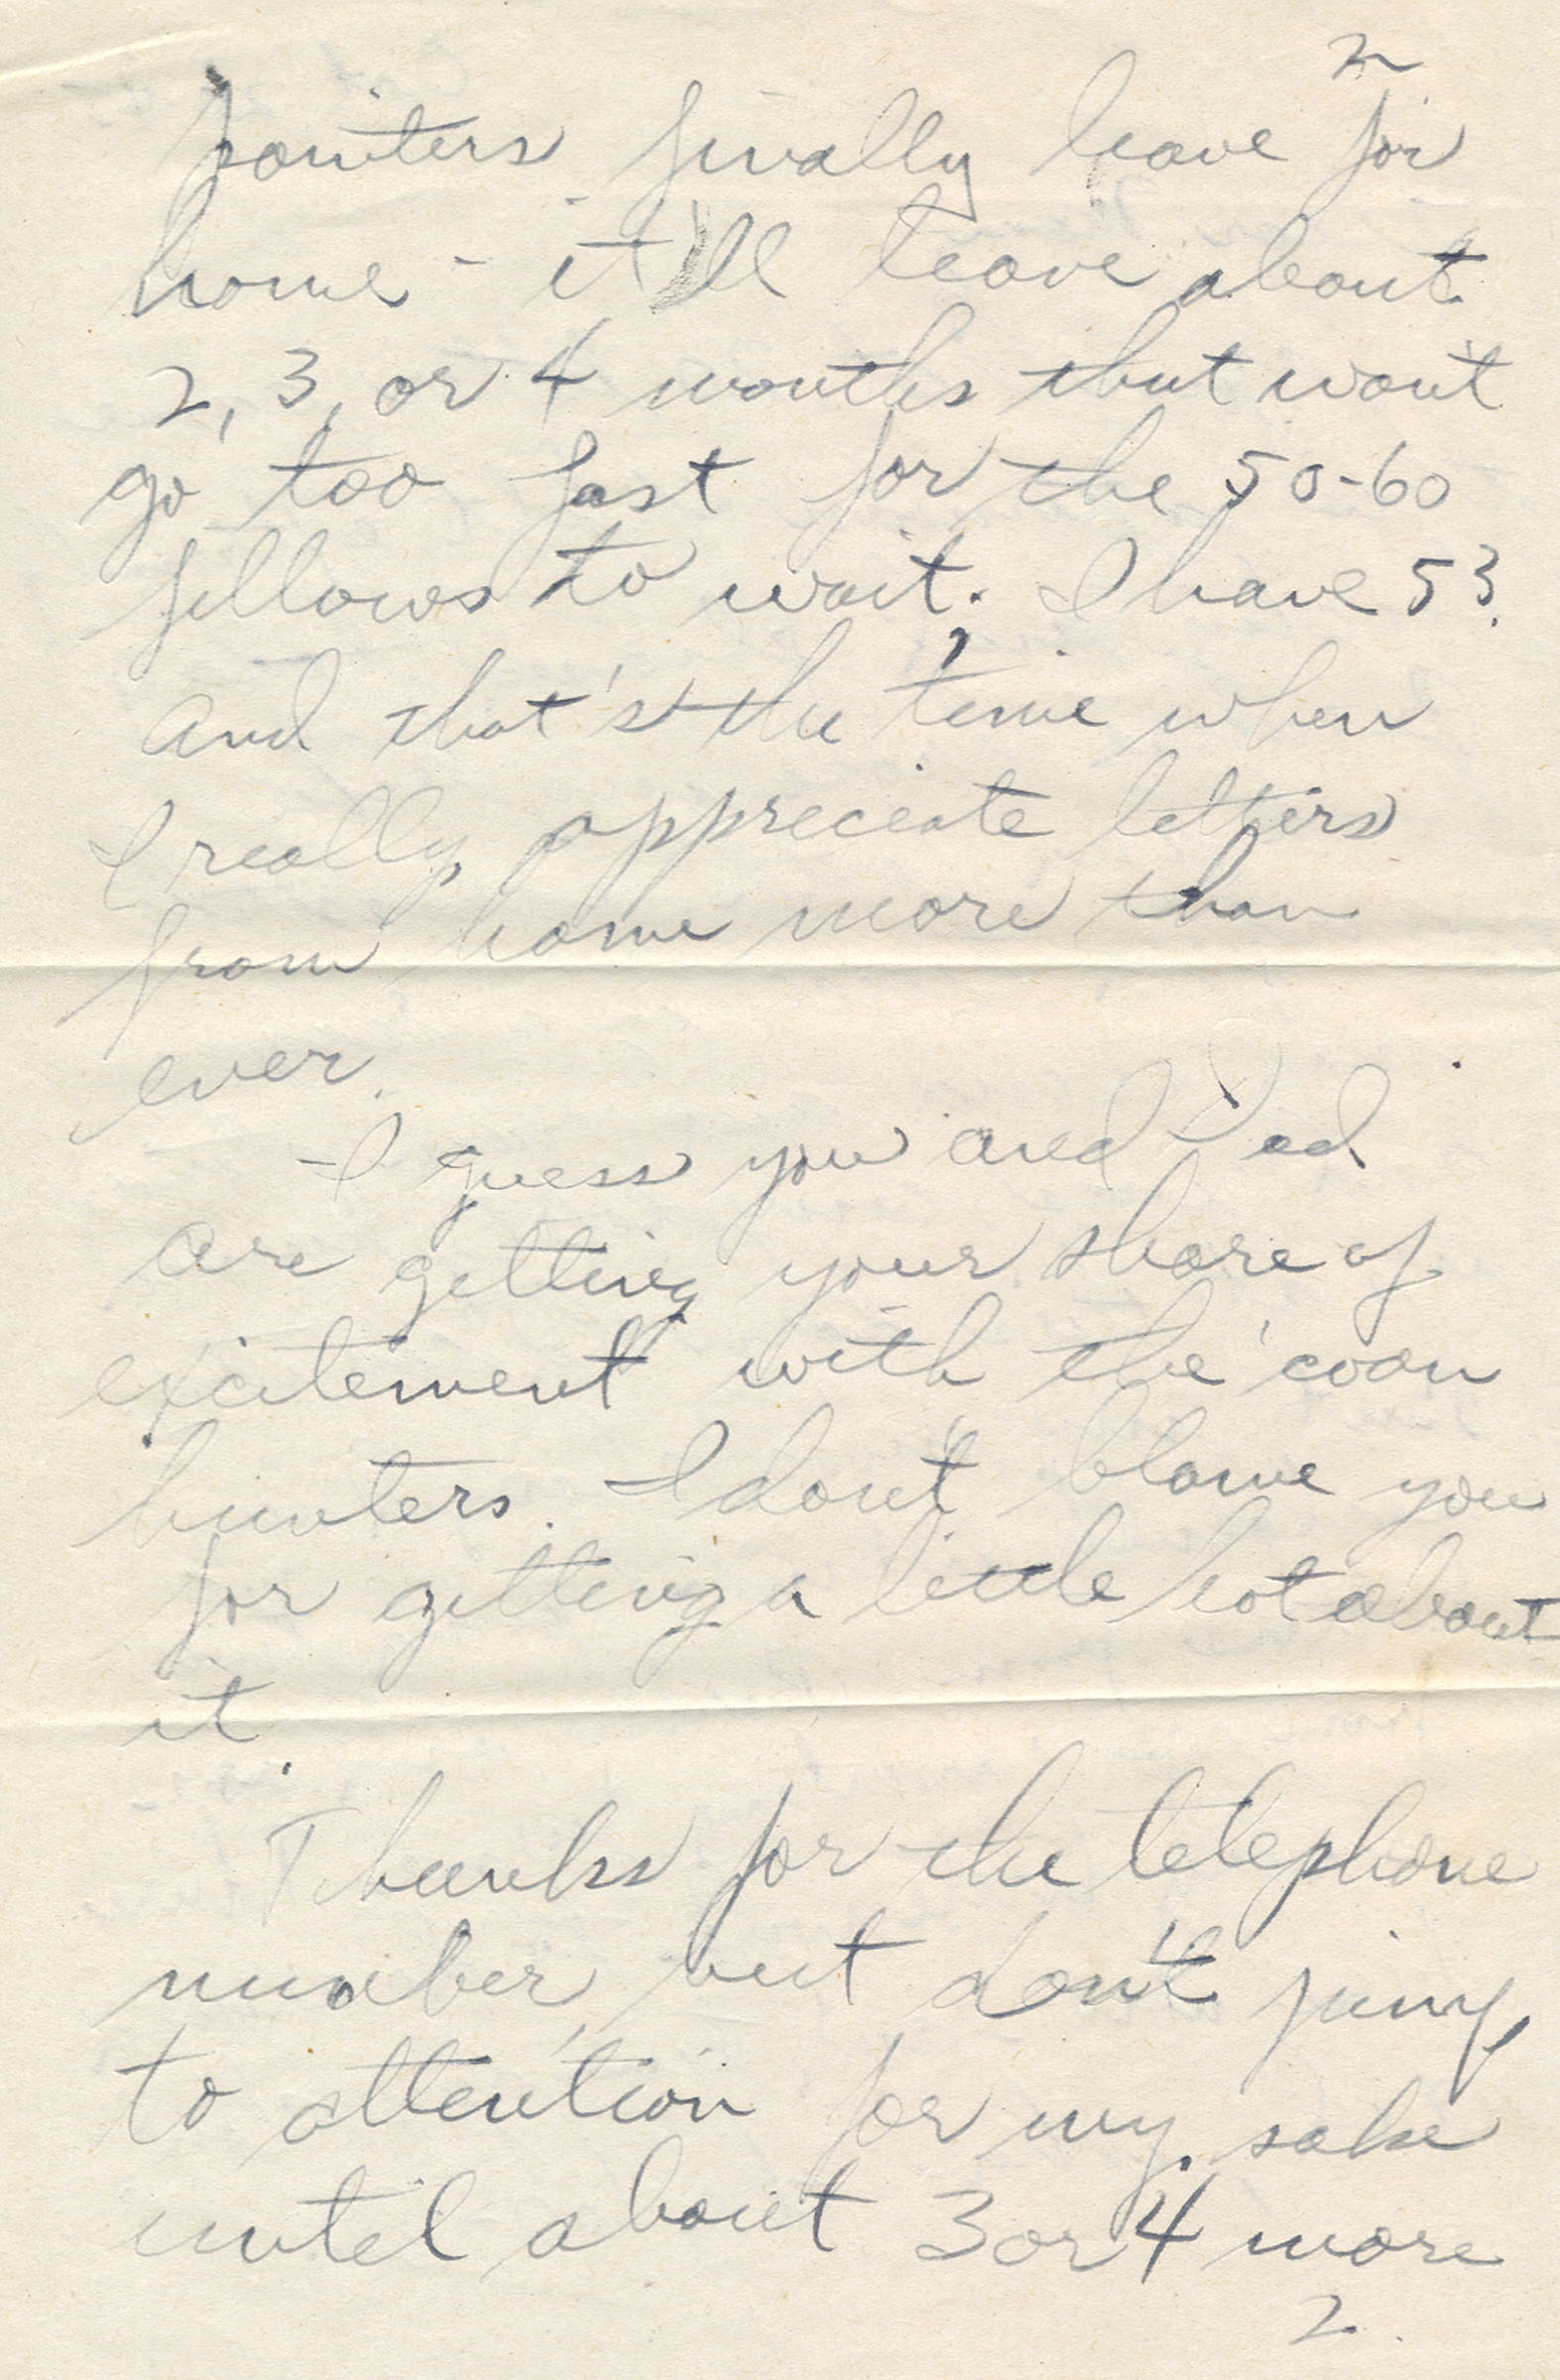 2
pointers finally leave for
home - it'll leave about
2, 3, or 4 months that won't
go too fast for the 50-60
fellows to wait. I have 53.
And that's the time when
I really appreciate letters
from home more than
ever.
I guess you and Dad
are getting your share of
excitement with the 'coon
hunters. I don't blame you
for getting a little hot about
it.
Thanks for the telephone
number, but don't jump
to attention for my sake
until about 3 or 4 more
2.